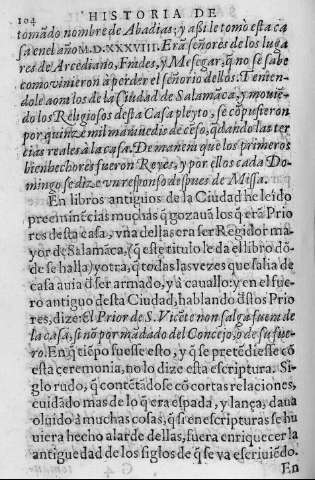 104 HISTORIA DE
tomãdo nombre de Abadias; y aſsi le tomò eſta ca
ſa en el año M.D.XXXVIII. Erã ſeñores de los luga
res de Arcediano, Frades, y Meſegar, q̃ no ſe ſabe
como vinieron à perder el ſeñorio dellos. Tenien-
dole aora los de la Ciudad de Salamãca, y mouiẽ-
do los Religioſos deſta Caſa pleyto, ſe cõpuſieron
por quinze mil marauedis de cẽſo, q̃dando las ter
cias reales à la caſa. De manera que los primeros
bienhechores fueron Reyes, y por ellos cada Do-
mingo ſe dize vn reſponſo deſpues de Miſſa.
En libros antiguos de la Ciudad he leído
preeminẽcias muchas q̃ gozauã los q̃ erã Prio
res deſta caſa, vña dellas era ſer Regidor ma
yor de Salamãca, (q̃ eſte titulo le da el libro dõ-
de ſe halla) y otra, q̃ todas las vezes que ſalia de
caſa auia d̃ ſer armado, y à cauallo: y en el fue-
ro antiguo deſta Ciudad, hablando d̃ſtos Prio
res, dize: El Prior de S. Vicẽte non ſalga fuera de
la caſa, ſi nõ por mãdado del Concejo, ò de ſu fue-
ro. En q̃ tiẽpo fueſſe eſto, y q̃ ſe pretẽdieſſe cõ
eſta ceremonia, no lo dize eſta eſcriptura. Si-
glo rudo, q̃ contẽtãdoſe cõ cortas relaciones,
cuidãdo mas de lo q̃ era eſpada, y lança, daua
oluido à muchas coſas, q̃ ſi en eſcripturas ſe hu
uiera hecho alarde dellas, fuera enriquecer la
antiguedad de los ſiglos de q̃ ſe va eſcriuiẽdo.
En